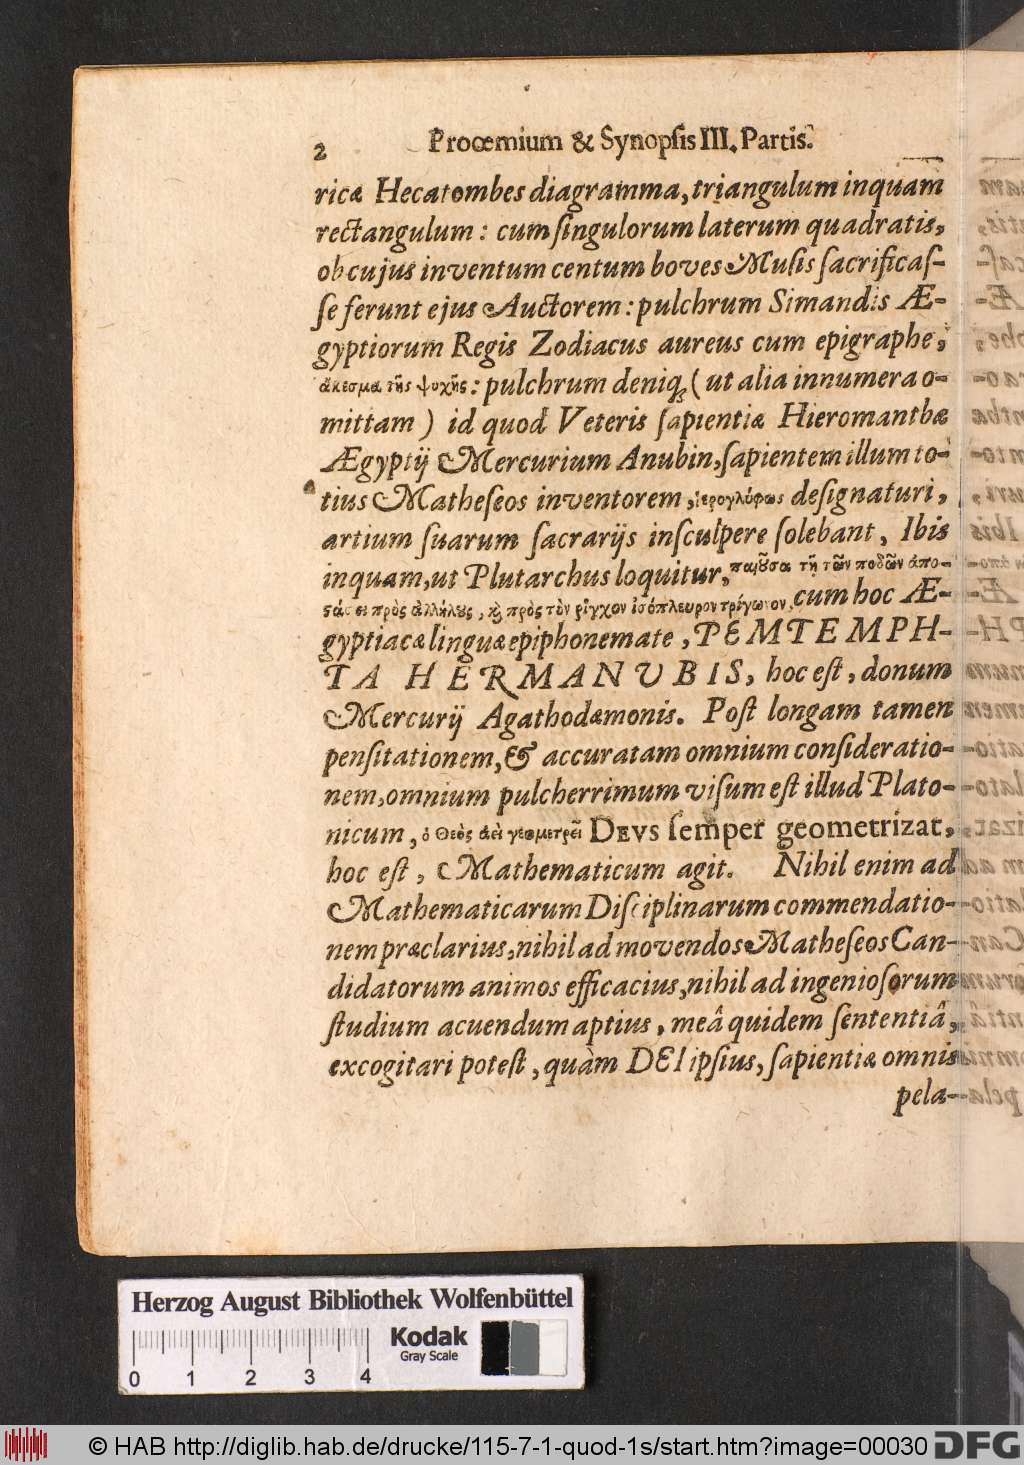 2 Proœmium & Synopſis III. Partis.
ricæ Hecatombes diagramma, triangulum inquam
rectangulum: cum ſingulorum laterum quadratis,
ob cujus inventum centum boves Muſis ſacrificaſ-
ſe ferunt ejus Auctorem: pulchrum Simandis Æ-
gyptiorum Regis Zodiacus aureus cum epigraphe,
ἄκεσμα τῆς ψυχῆς: pulchrum deniq; (ut alia innumera o-
mittam) id quod Veteris ſapientiæ Hieromanthæ
Ægyptij Mercurium Anubin, ſapientem illum to-
tius Matheſeos inventorem, ἱερογλύφως deſignaturi,
artium ſuarum ſacrarijs inſculpere ſolebant, Ibis
inquam, ut Plutarchus loquitur, τῇ τῶν ποδῶν ἀπο-
πρὸς ἀλλήλους, καὶ πρὸς τὸν ῥύγχον ἰσόπλευρον τρίγωνον, cum hoc Æ-
gyptiacæ linguæ epiphonemate, PEMTEMPH-
TA HERMANUBIS, hoc eſt, donum
Mercurij Agathodæmonis. Poſt longam tamen
penſitationem, & accuratam omnium conſideratio-
nem, omnium pulcherrimum viſum eſt illud Plato-
nicum, ὁ Θεὸς ἀεὶ γεωμετρεῖ DEVS ſemper geometrizat,
hoc eſt, Mathematicum agit. Nihil enim ad
Mathematicarum Diſciplinarum commendatio-
nem præclarius, nihil ad movendos Matheſeos Can-
didatorum animos efficacius, nihil ad ingenioſorum
ſtudium acuendum aptius, meâ quidem ſententiâ,
excogitari poteſt, quàm DEI ipſius, ſapientiæ omnis
pela-
Herzog August Bibliothek Wolfenbüttel
Kodak
Gray Scale
0 1 2 3 4
© HAB http://diglib.hab.de/drucke/115-7-1-quod-1s/start.htm?image=00030 DFG